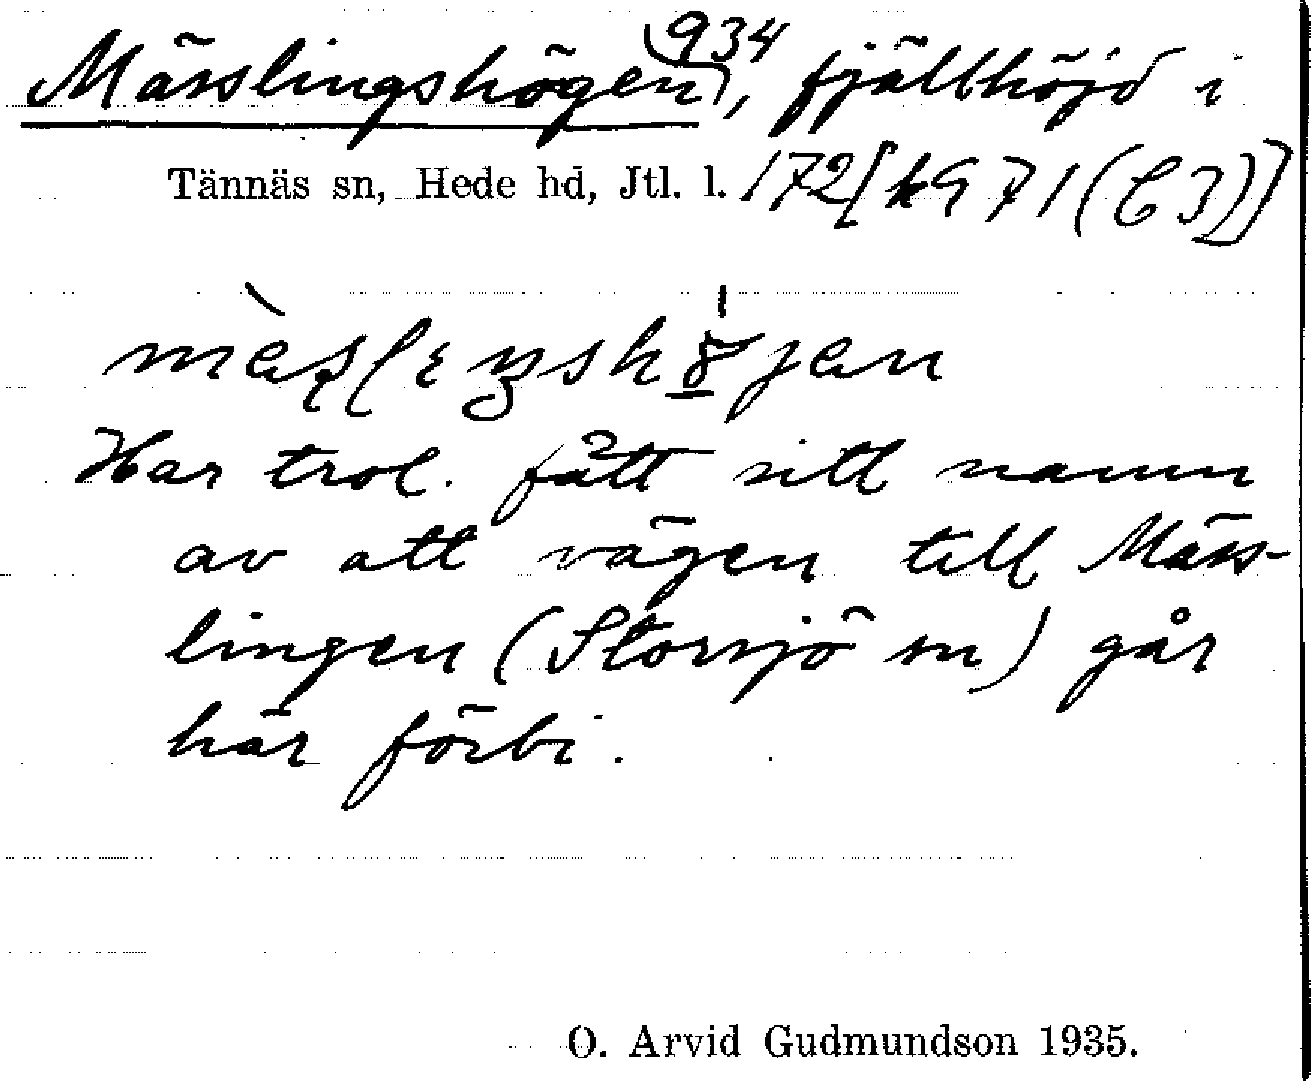 934
Mässlingshögen, fjällhöjd i
Tännäs sn, Hede hd, Jtl. l. 172 [k971 (C3)]
Har trol. fått sitt namn
av att vägen till Mäss-
lingen (Storsjö sn) går
här förbi.
O. Arvid Gudmundson 1935.